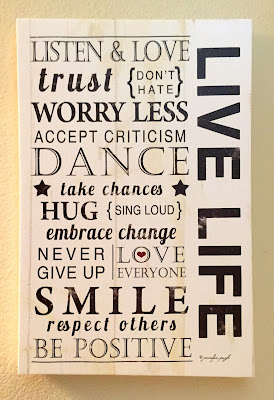 LISTEN & LOVE
trust {DON'T HATE}
WORRY LESS
ACCEPT CRITICISM
DANCE
take chances
HUG {SING LOUD}
embrace change
NEVER GIVE UP
LOVE EVERYONE
SMILE
respect others
BE POSITIVE
LIVE LIFE